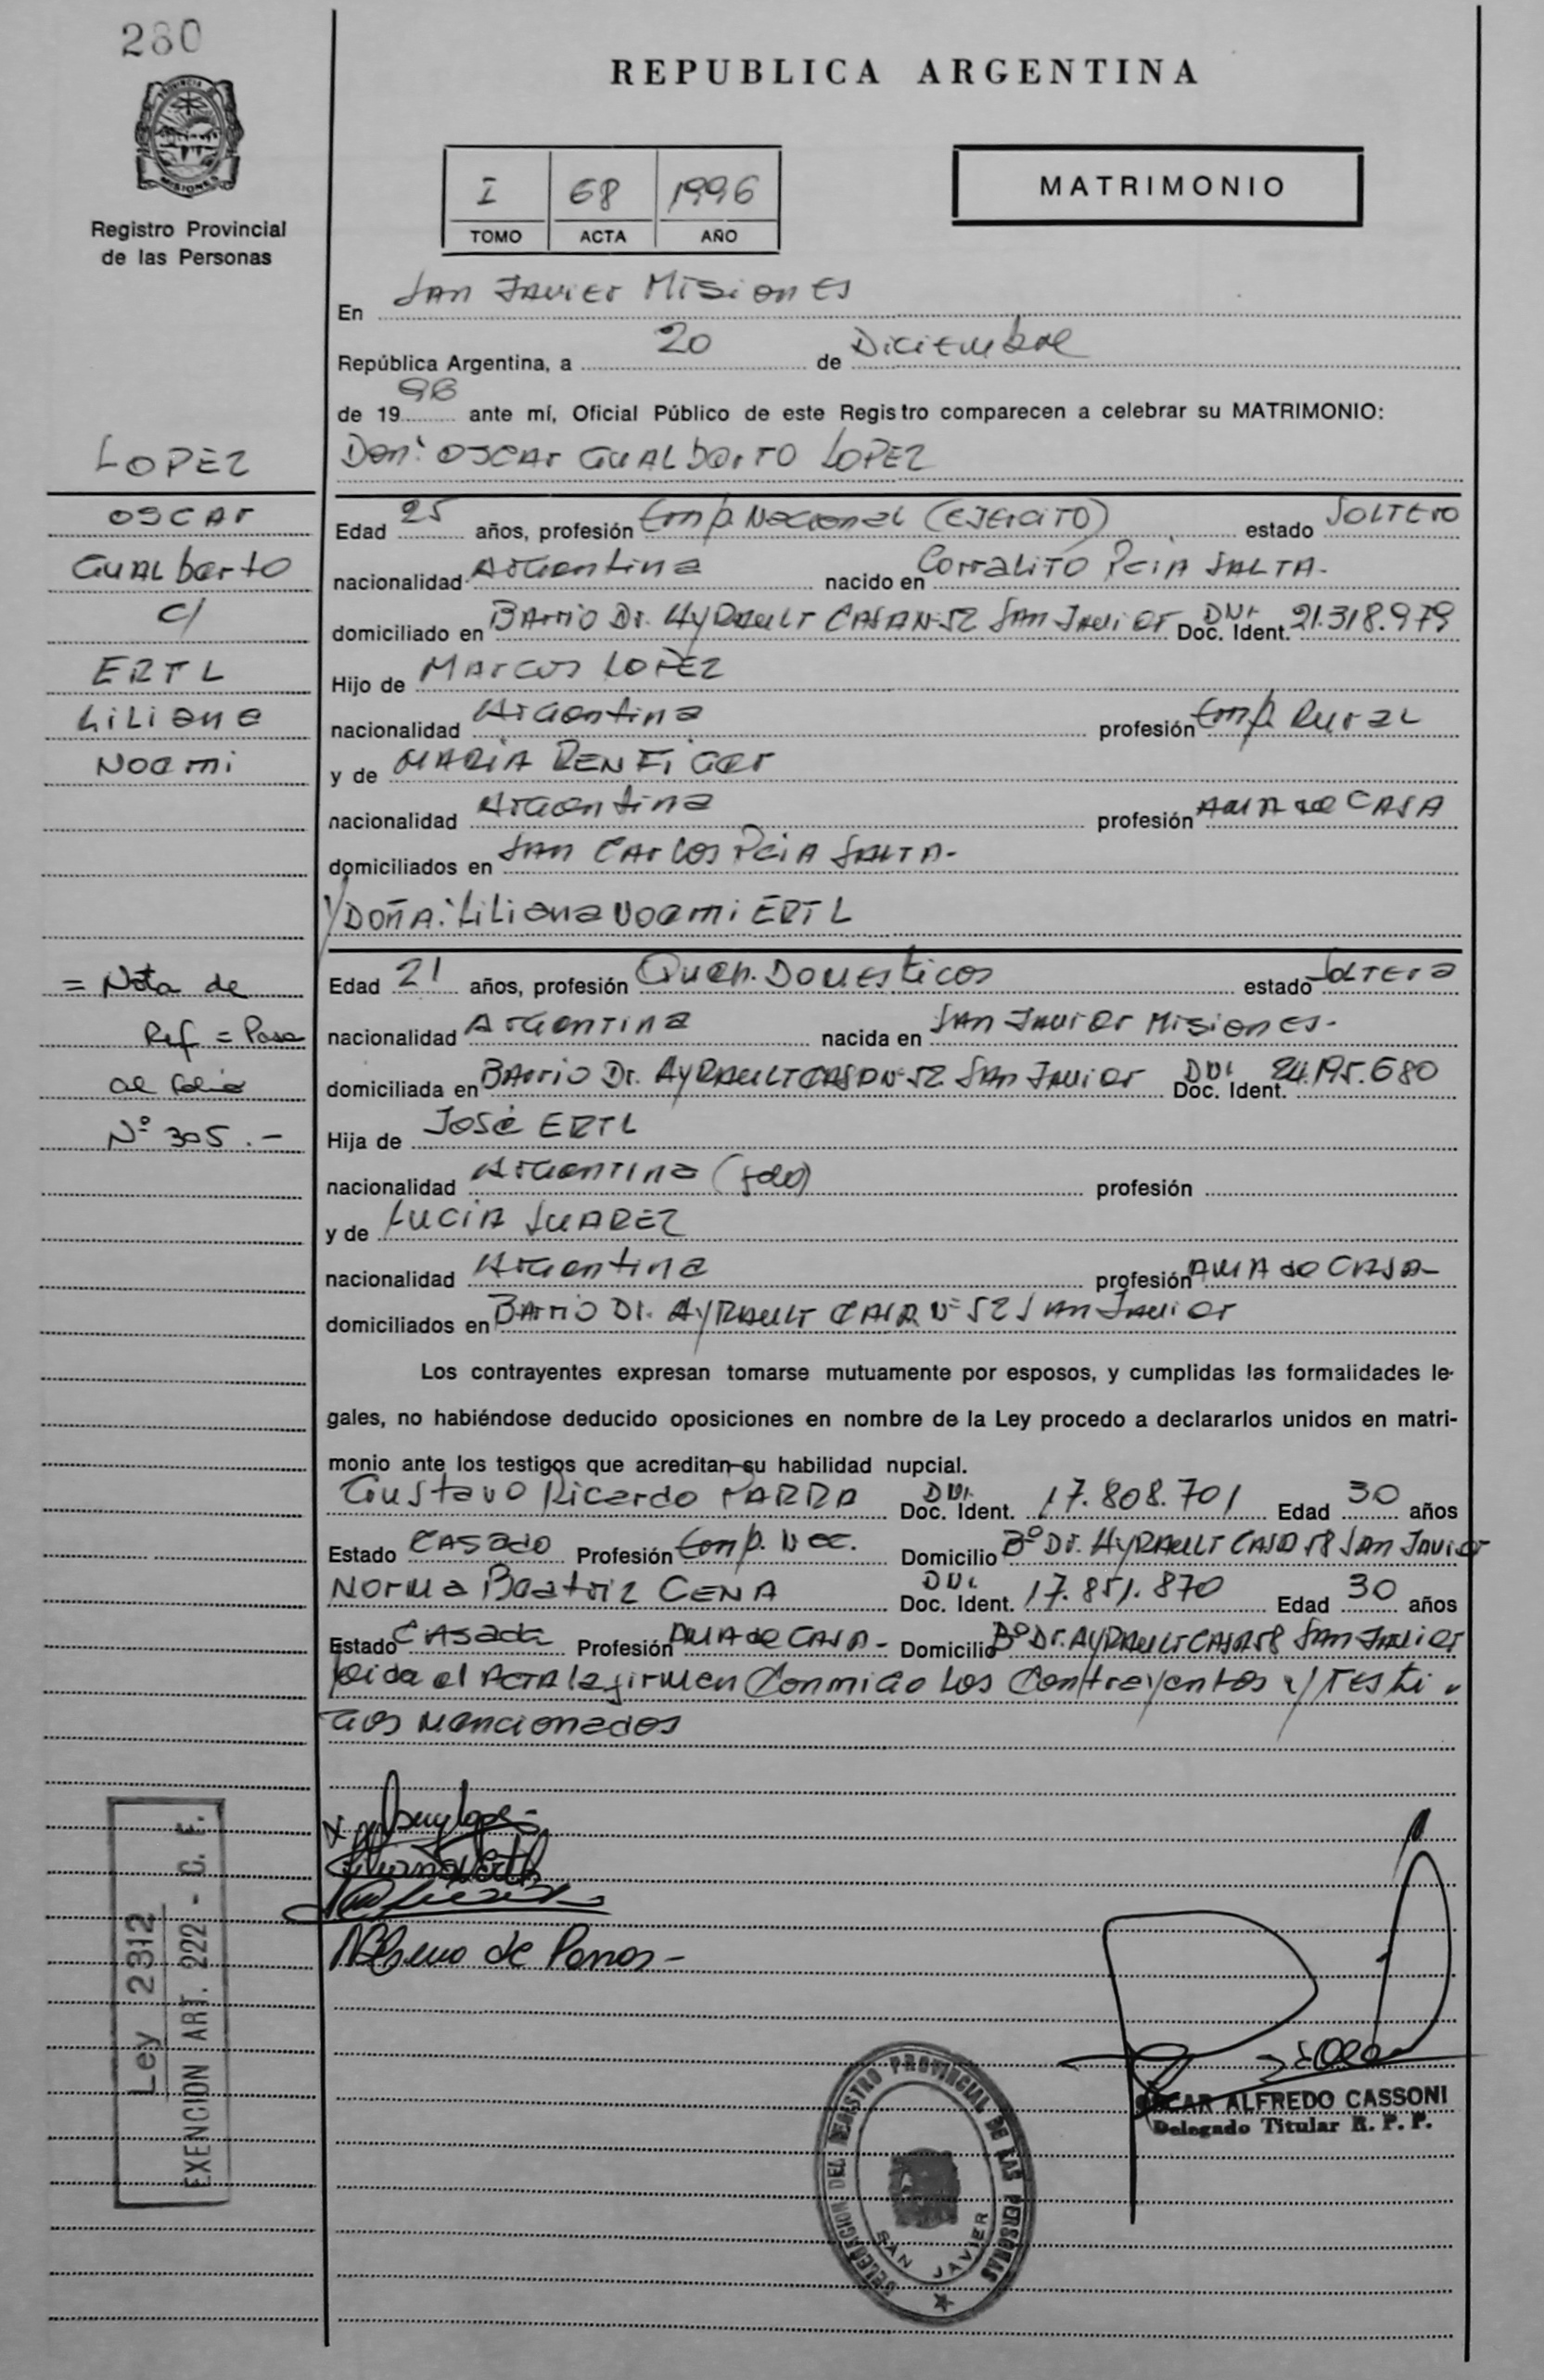 280
REPUBLICA ARGENTINA
PROVINCIA DE
MISIONES
I 68 1996
TOMO ACTA AÑO
MATRIMONIO
Registro Provincial
de las Personas
En San Javier Misiones
República Argentina, a 20 de Diciembre
de 1996 ante mí, Oficial Público de este Registro comparecen a celebrar su MATRIMONIO:
LOPEZ
OSCAR
GUALberto
c/
ERTL
Liliana
Noemi
= Nota de
Ref = Pasa
al folio
Nº 305.-
Don: OSCAR GUALberTO LOPEZ
Edad 25 años, profesión Emp. Nacional (EJERCITO) estado SOLTERO
nacionalidad Argentina nacido en CorraLITO PCIA SALTA.
domiciliado en BArrio Dr. AyRAULT CASA Nº 52 SAn Javier DNI. Doc. Ident. 21.318.979
Hijo de MArcos LOPEZ
nacionalidad Argentina profesión Emp. Rural
y de MARIA RENFIGer
nacionalidad Argentina profesión AMA de CASA
domiciliados en SAn CArLos PCIA SALTA-
y DOÑA: Liliana Noemi ERTL
Edad 21 años, profesión Queh. Domesticos estado SoLTEra
nacionalidad Argentina nacida en SAn Javier Misiones-
domiciliada en BArrio Dr. AyRAULT CASA Nº 52 SAn Javier DNI Doc. Ident. 24.195.680
Hija de José ERTL
nacionalidad Argentina (fdo) profesión
y de LUCIA SUAREZ
nacionalidad Argentina profesión AMA de CASA-
domiciliados en BArrio Dr. AyRAULT CASA Nº 52 SAn Javier
Los contrayentes expresan tomarse mutuamente por esposos, y cumplidas las formalidades le-
gales, no habiéndose deducido oposiciones en nombre de la Ley procedo a declararlos unidos en matri-
monio ante los testigos que acreditan su habilidad nupcial.
Gustavo Ricardo PARRA DNI. Doc. Ident. 17.808.701 Edad 30 años
Estado CAsado Profesión Emp. Nac. Domicilio Bº Dr. AyRAULT CASA 58 SAn Javier
Norma Beatriz CENA DNI. Doc. Ident. 17.851.870 Edad 30 años
Estado CAsada Profesión AMA de CASA- Domicilio Bº Dr. AyRAULT CASA 58 SAn Javier
Leida el ACTA la firmen Conmigo Los Contrayentes y Testi-
gos Mencionados
Ley 2312
EXENCION ART. 222 - C. F.
de Parra-
OSCAR ALFREDO CASSONI
Delegado Titular R. P. P.
DELEGACION DEL REGISTRO PROVINCIAL DE LAS PERSONAS
SAN JAVIER